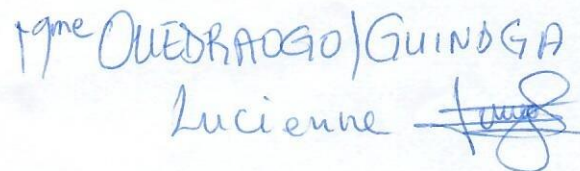 Mme OUEDRAOGO/GUINDGA
Lucienne